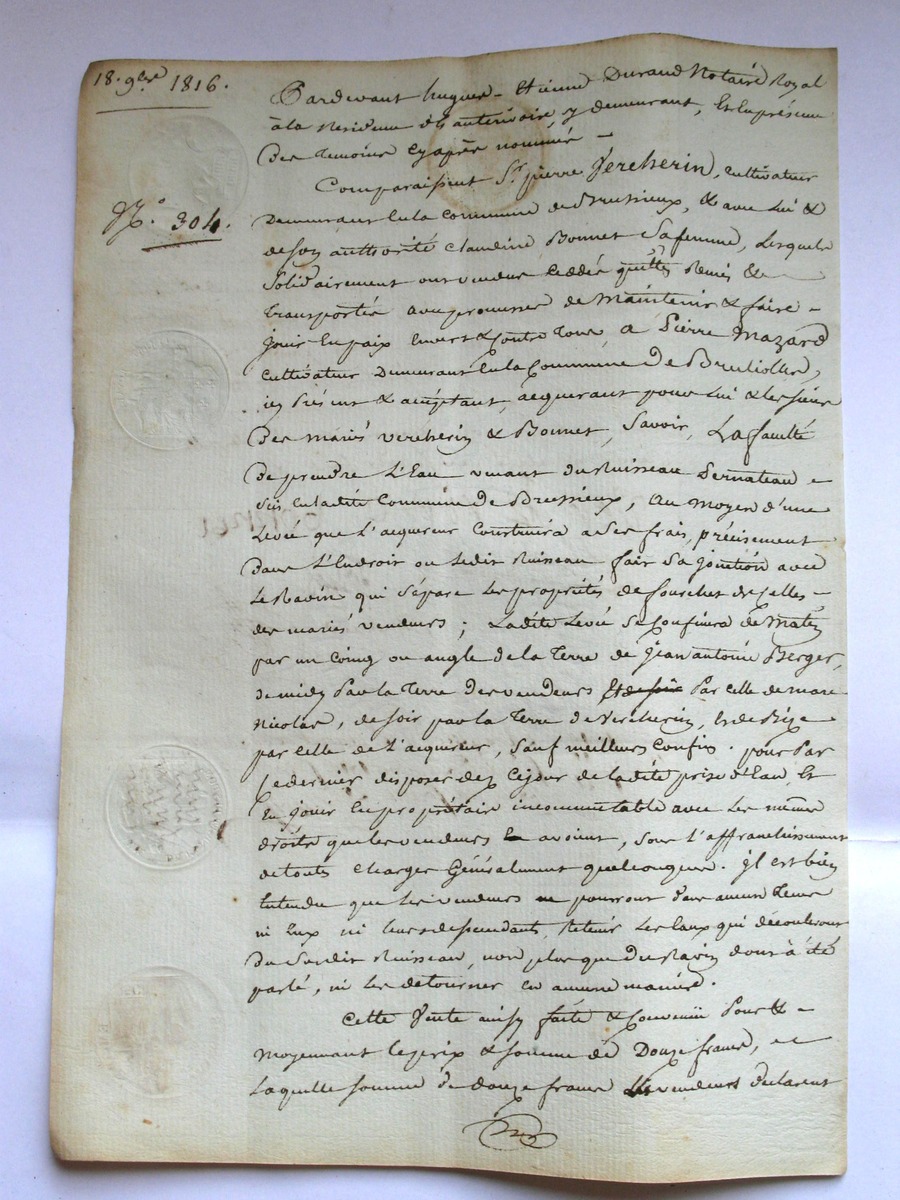 18. 9bre 1816.
N.o 304.
Pardevant hugues-Etienne Durand Notaire Royal
à la Residence de hauterivoire, y demeurant, & en presence
des temoins cyaprès nommés -
Comparaissent Sr. pierre Vercherin, cultivateur
demeurant en la commune de Brussieux, & avec lui &
de son authorité claudine Bonnet sa femme, lesquels
solidairement ont vendu ceddé quitté Remis & -
transportés avec promesse de maintenir & faire -
jouir en paix envers & contre tous à Pierre Mazard
cultivateur demeurant en la Commune de Brullioles,
icy présent & acceptant, acquerant pour lui & les siens
des mariés vercherin & Bonnet, savoir, La faculté
de prendre l'Eau venant du Ruisseau Pernateau -
sis en ladite Commune de Brussieux, au moyen d'une
Levée que l'acquereur construira a ses frais, précisement
dans l'Endroit ou ledit Ruisseau fait sa jonction avec
le Ravin qui sépare les propriétés de fourchet de celles -
des mariés vendeurs; Ladite Levée se confinera de matin
par un Coing ou angle de la terre de jean antoine Berger,
de midy par la terre des vendeurs et de soir Par celle de marc
nicolas, de soir par la terre de Vercherin, & de Bize
par celle de l'acquereur, sauf meilleurs confins. pour Par
ce dernier disposer dez ce jour de ladite prise d'Eau, Et
En jouir en propriétaire incommutable avec les mêmes
droits que les vendeurs avoient, sous l'affranchissement
de toutes charges Généralement quelconques. jl est bien
Entendu que les vendeurs ne pourront dans aucun tems
ni Eux ni leurs descendants, Retenir les Eaux qui découleront
du susdit Ruisseau, non plus que du Ravin dont à été
parlé, ni les detourner en aucune manière.
Cette Vente ainsy faite & convenüe Pour & -
moyennant le prix & somme de Douze francs, -
Laquelle somme de douze francs les vendeurs declarent